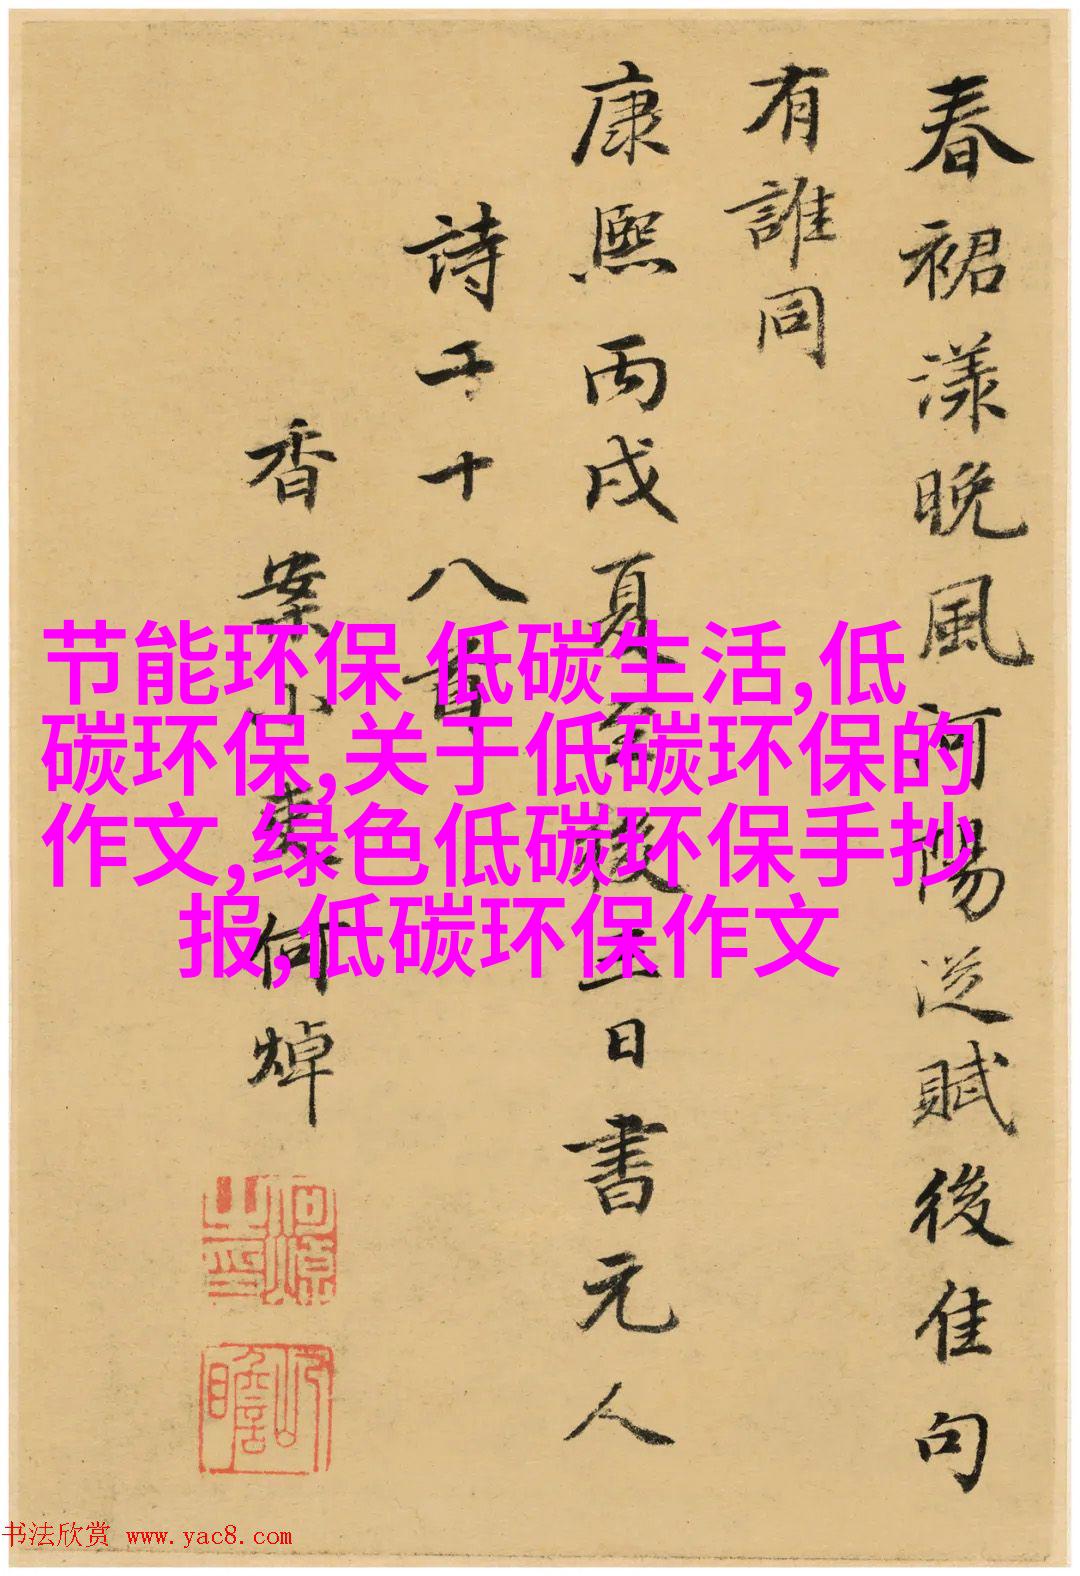 春裙漾晚風河陽從賦後佳句
有誰同
康熙丙戌夏至後三日書元人
詩于十八首
香案小吏何焯
节能环保 低碳生活,低
碳环保,关于低碳环保的
作文,绿色低碳环保手抄
报,低碳环保作文
书法欣赏 www.yac8.com